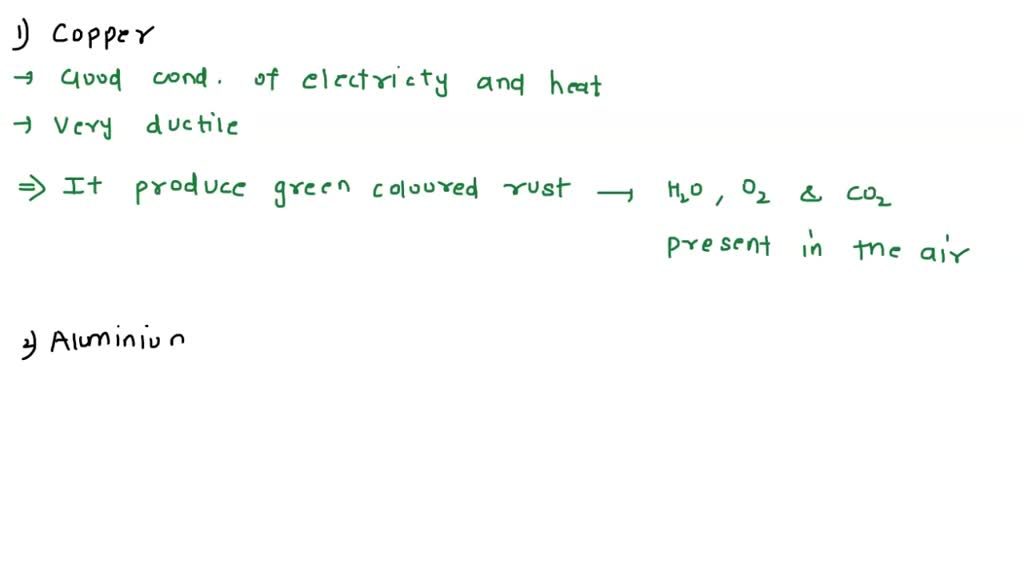 1) Copper
→ Good cond. of electricty and heat
→ Very ductile
⇒ It produce green coloured rust → H₂O, O₂ & CO₂
present in the air
2) Aluminiun